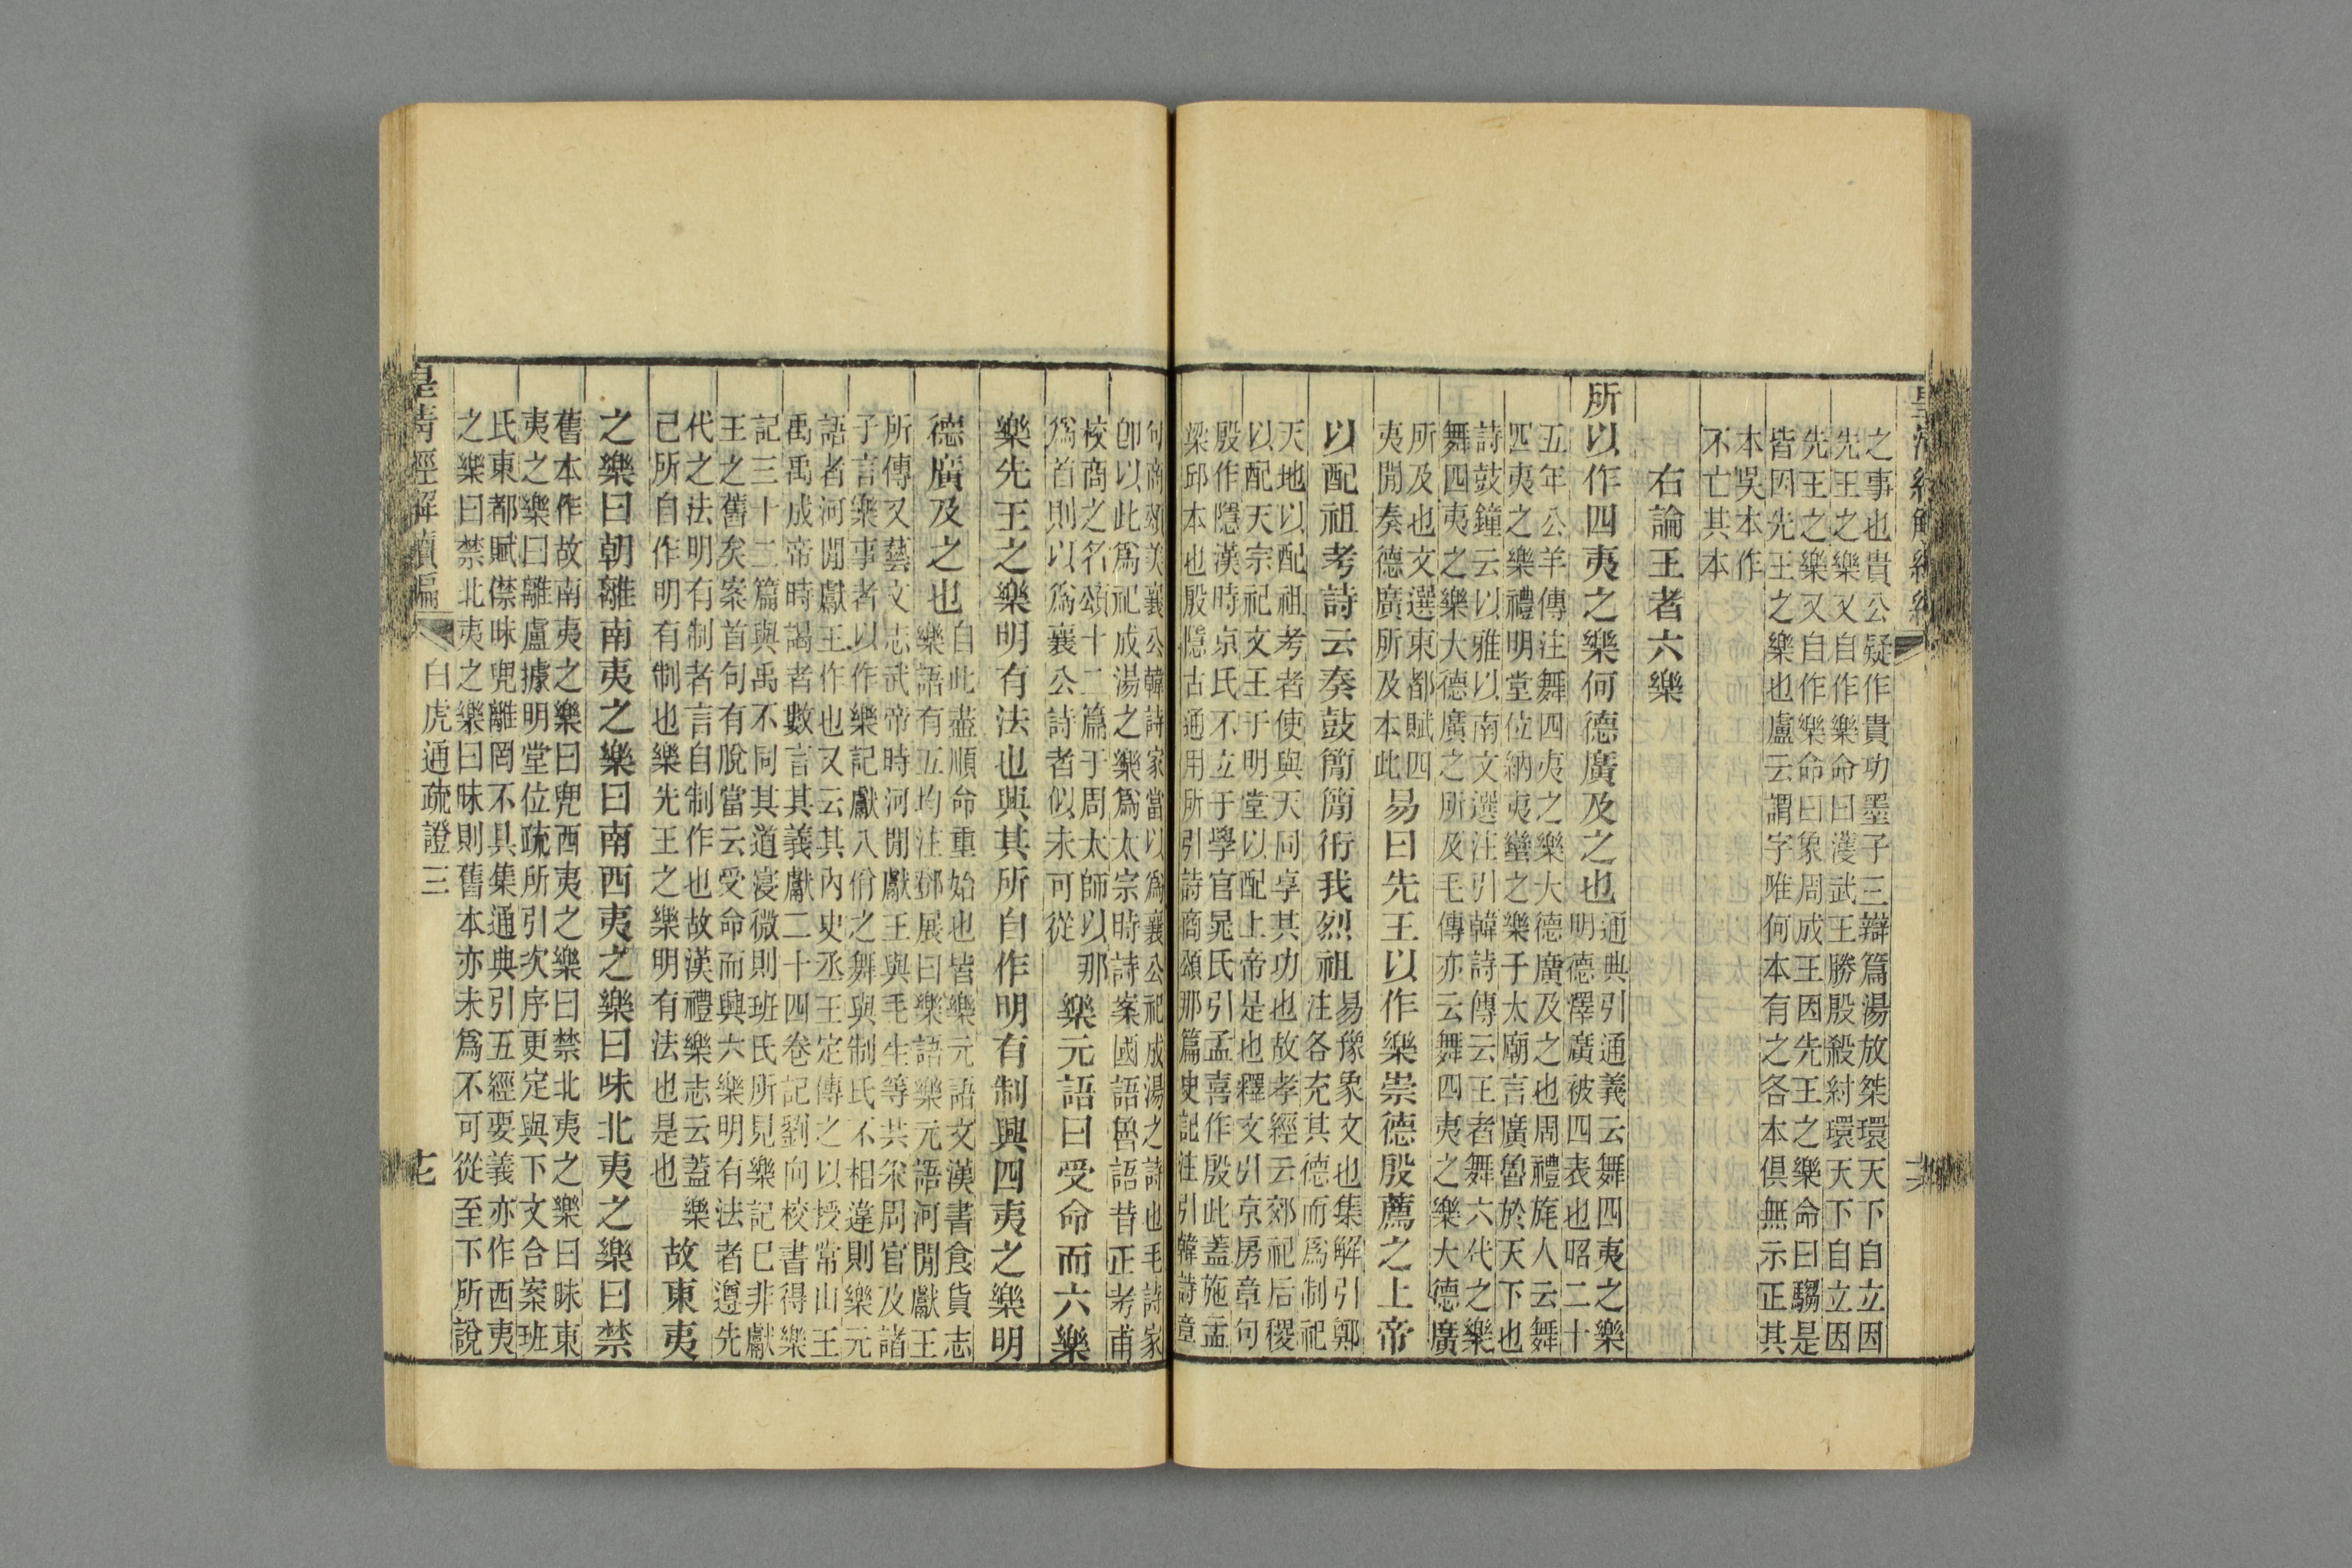 之事也貴公疑作貴功墨子三辯篇湯放桀環天下自立因
先王之樂又自作樂命曰濩武王勝殷殺紂環天下自立因
先王之樂又自作樂命曰象周成王因先王之樂命曰騶是
皆因先王之樂也盧云謂字唯何本有之各本俱無示正其
本吳本作
不亡其本
右論王者六樂
所以作四夷之樂何德廣及之也
通典引通義云舞四夷之樂
明德澤廣被四表也昭二十
五年公羊傳注舞四夷之樂大德廣及之也周禮旄人云舞
四夷之樂禮明堂位納夷蠻之樂于太廟言廣魯於天下也
詩鼓鐘云以雅以南文選注引韓詩傳云王者舞六代之樂
舞四夷之樂大德廣之所及毛傳亦云舞四夷之樂大德廣
所及也文選東都賦四
夷閒奏德廣所及本此
易曰先王以作樂崇德殷薦之上帝
以配祖考詩云奏鼓簡簡衎我烈祖
易豫象文也集解引鄭
注各充其德而爲制祀
天地以配祖考者使與天同享其功也故孝經云郊祀后稷
以配天宗祀文王于明堂以配上帝是也釋文引京房章句
殷作隱漢時京氏不立于學官晁氏引孟喜作殷此蓋施孟
梁邱本也殷隱古通用所引詩商頌那篇史記注引韓詩章
句商頌美襄公韓詩家當以爲襄公祀成湯之詩也毛詩家
卽以此爲祀成湯之樂爲太宗時詩案國語魯語昔正考甫
校商之名頌十二篇于周太師以那
爲首則以爲襄公詩者似未可從
樂元語曰受命而六樂
樂先王之樂明有法也與其所自作明有制興四夷之樂明
德廣及之也
自此盡順命重始也皆樂元語文漢書食貨志
樂語有五均注鄧展曰樂語樂元語河閒獻王
所傳又藝文志武帝時河閒獻王與毛生等共采周官及諸
子言樂事者以作樂記獻八佾之舞與制氏不相違則樂元
語者河閒獻王作也又云其內史丞王定傳之以授常山王
禹禹成帝時謁者數言其義獻二十四卷記劉向校書得樂
記三十二篇與禹不同其道寖微則班氏所見樂記已非獻
王之舊矣案首句有脫當云受命而興六樂明有法者遵先
代之法明有制者言自制作也故漢禮樂志云蓋樂
己所自作明有制也樂先王之樂明有法也是也
故東夷
之樂曰朝離南夷之樂曰南西夷之樂曰味北夷之樂曰禁
舊本作故南夷之樂曰兜西夷之樂曰禁北夷之樂曰昧東
夷之樂曰離盧據明堂位疏所引次序更定與下文合案班
氏東都賦僸昧兜離罔不具集通典引五經要義亦作西夷
之樂曰禁北夷之樂曰昧則舊本亦未爲不可從至下所說
皇清經解續編
白虎通疏證三